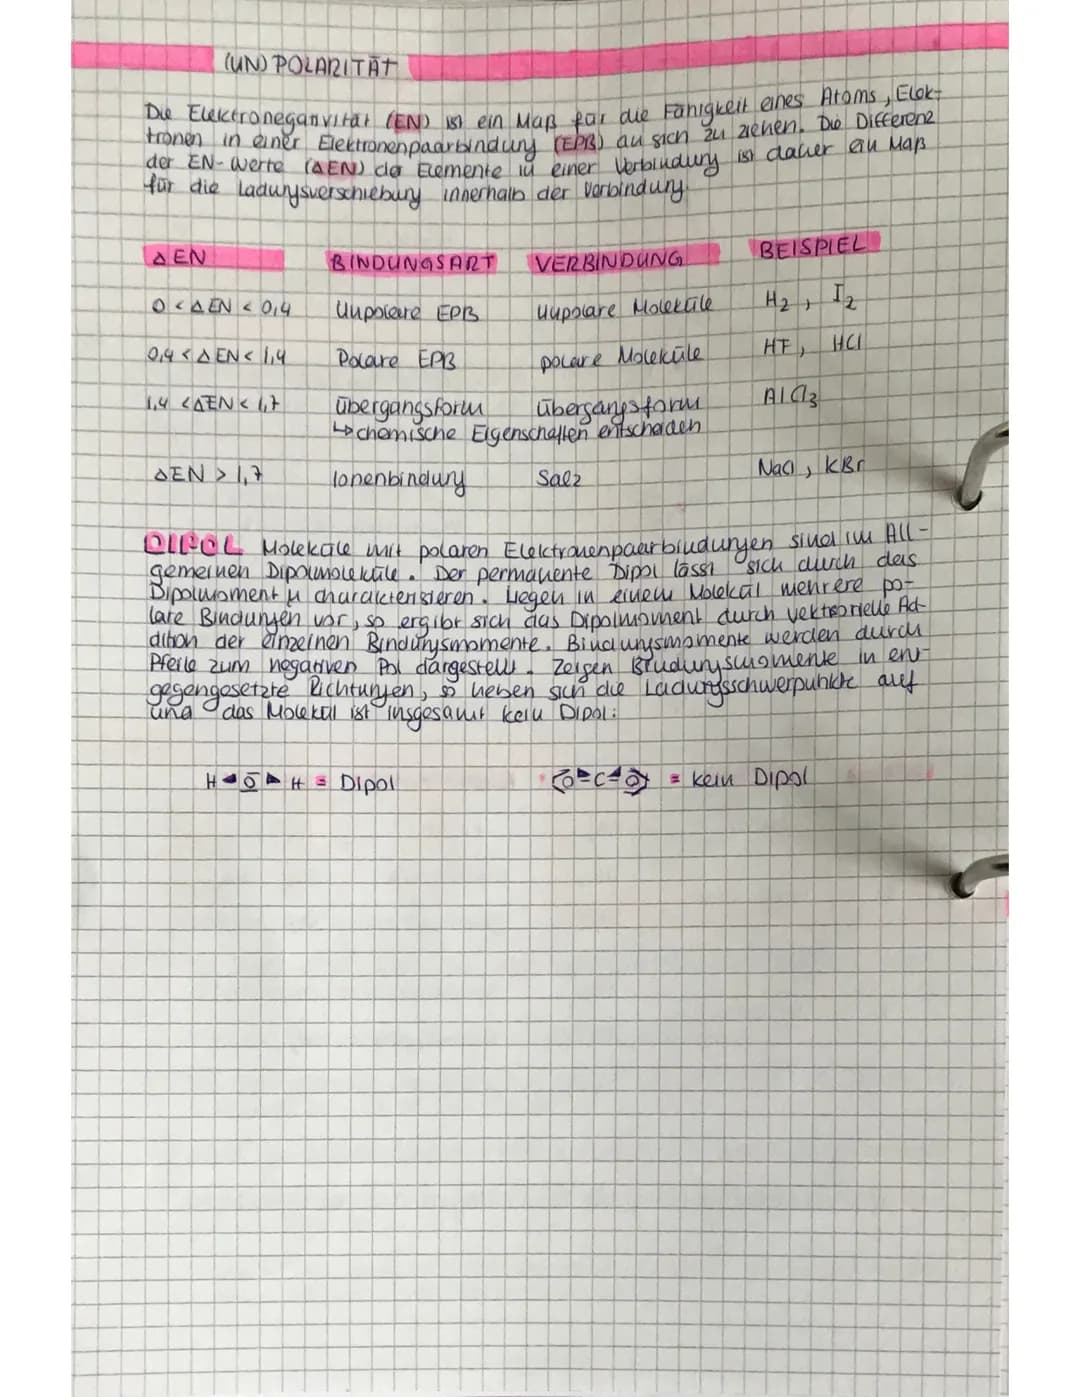 (UN) POLARITÄT
Die Elektronegativität (EN) ist ein Maß für die Fähigkeit eines Atoms, Elek-
tronen in einer Elektronenpaarbindung (EPB) an sich zu ziehen. Die Differenz
der EN-Werte (ΔEN) der Elemente in einer Verbindung ist daher ein Maß
für die Ladungsverschiebung innerhalb der Verbindung.
ΔEN BINDUNGSART VERBINDUNG BEISPIEL
0 < ΔEN < 0,4 Unpolare EPB Unpolare Moleküle H2, I2
0,4 < ΔEN < 1,4 Polare EPB polare Moleküle HF, HCl
1,4 < ΔEN < 1,7 Übergangsform Übergangsform AlCl3
↳ chemische Eigenschaften entscheiden
ΔEN > 1,7 Ionenbindung Salz NaCl, KBr
DIPOL Moleküle mit polaren Elektronenpaarbindungen sind im All-
gemeinen Dipolmoleküle. Der permanente Dipol lässt sich durch das
Dipolmoment μ charakterisieren. Liegen in einem Molekül mehrere po-
lare Bindungen vor, so ergibt sich das Dipolmoment durch vektorielle Ad-
dition der einzelnen Bindungsmomente. Bindungsmomente werden durch
Pfeile zum negativen Pol dargestellt. Zeigen Bindungsmomente in ent-
gegengesetzte Richtungen, so heben sich die Ladungsschwerpunkte auf
und das Molekül ist insgesamt kein Dipol:
H ◄ O ► H = Dipol O ► C ◄ O = kein Dipol